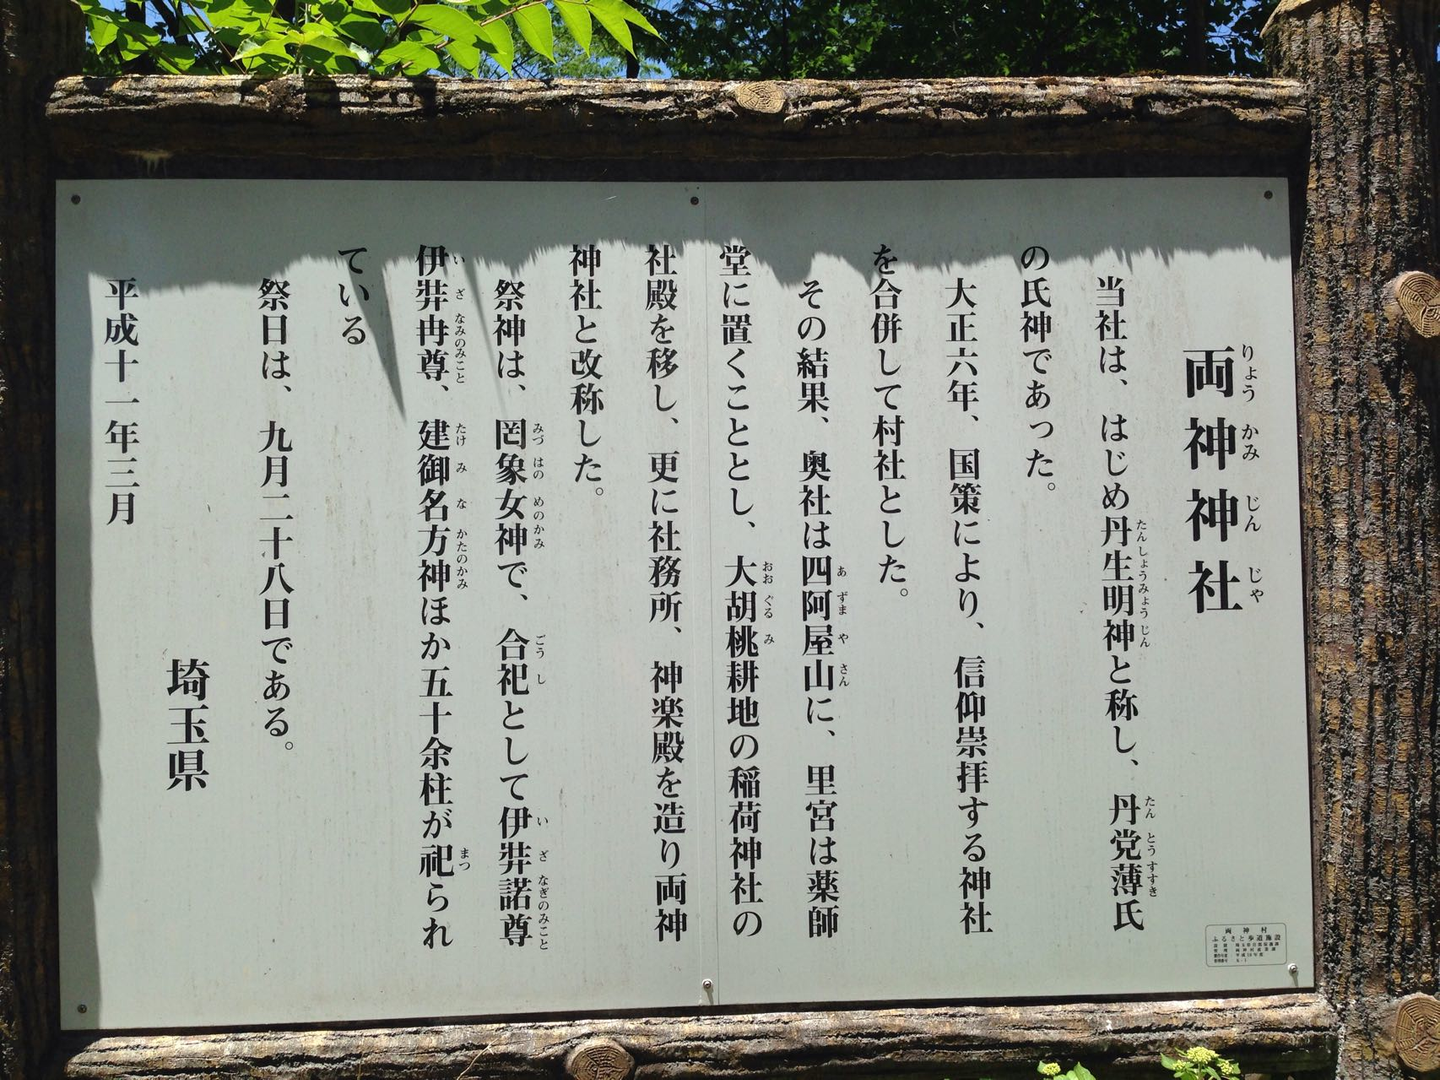 両神神社
当社は、はじめ丹生明神と称し、丹党薄氏
の氏神であった。
大正六年、国策により、信仰崇拝する神社
を合併して村社とした。
その結果、奥社は四阿屋山に、里宮は薬師
堂に置くこととし、大胡桃耕地の稲荷神社の
社殿を移し、更に社務所、神楽殿を造り両神
神社と改称した。
祭神は、罔象女神で、合祀として伊弉諾尊
伊弉冉尊、建御名方神ほか五十余柱が祀られ
ている
祭日は、九月二十八日である。
埼玉県
平成十一年三月
両神村
ふるさと歩道施設